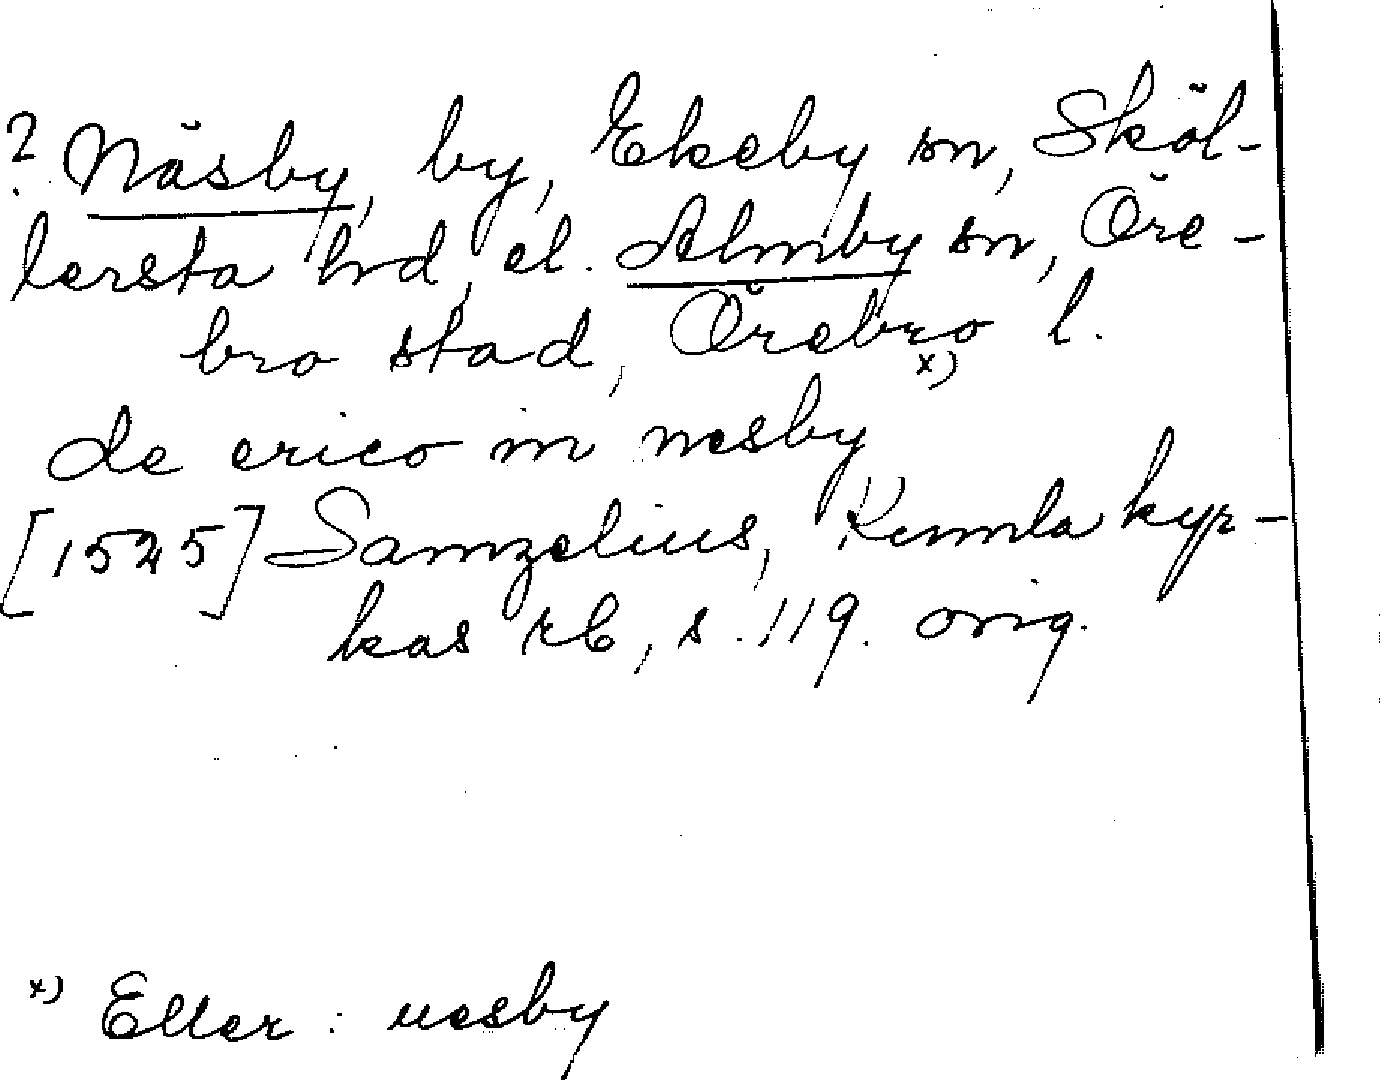 ? Näsby, by, Ekeby sn, Sköl-
lersta hd, el. Almby sn, Öre-
bro stad, Örebro l.
de erico in nesby x)
[1545] Samzelius, Kumla kyr-
kas rb, s. 119. orig.
x) Eller: uesby